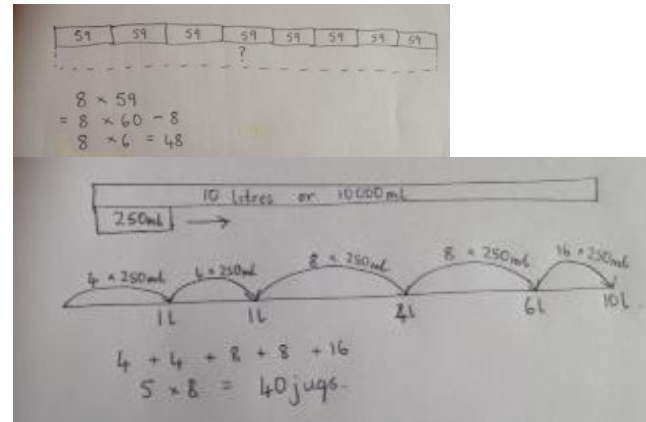 59 59 59 59 59 59 59 59
?
8 × 59
= 8 × 60 - 8
8 × 6 = 48
10 litres or 10000ml
250ml
4 × 250ml 4 × 250ml 8 × 250ml 8 × 250ml 16 × 250ml
1L 1L 4L 6L 10L
4 + 4 + 8 + 8 + 16
5 × 8 = 40 jugs.